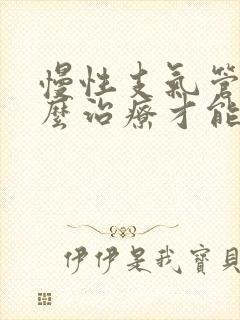 慢性支氣管
麼治療才能
伊伊是我寶貝